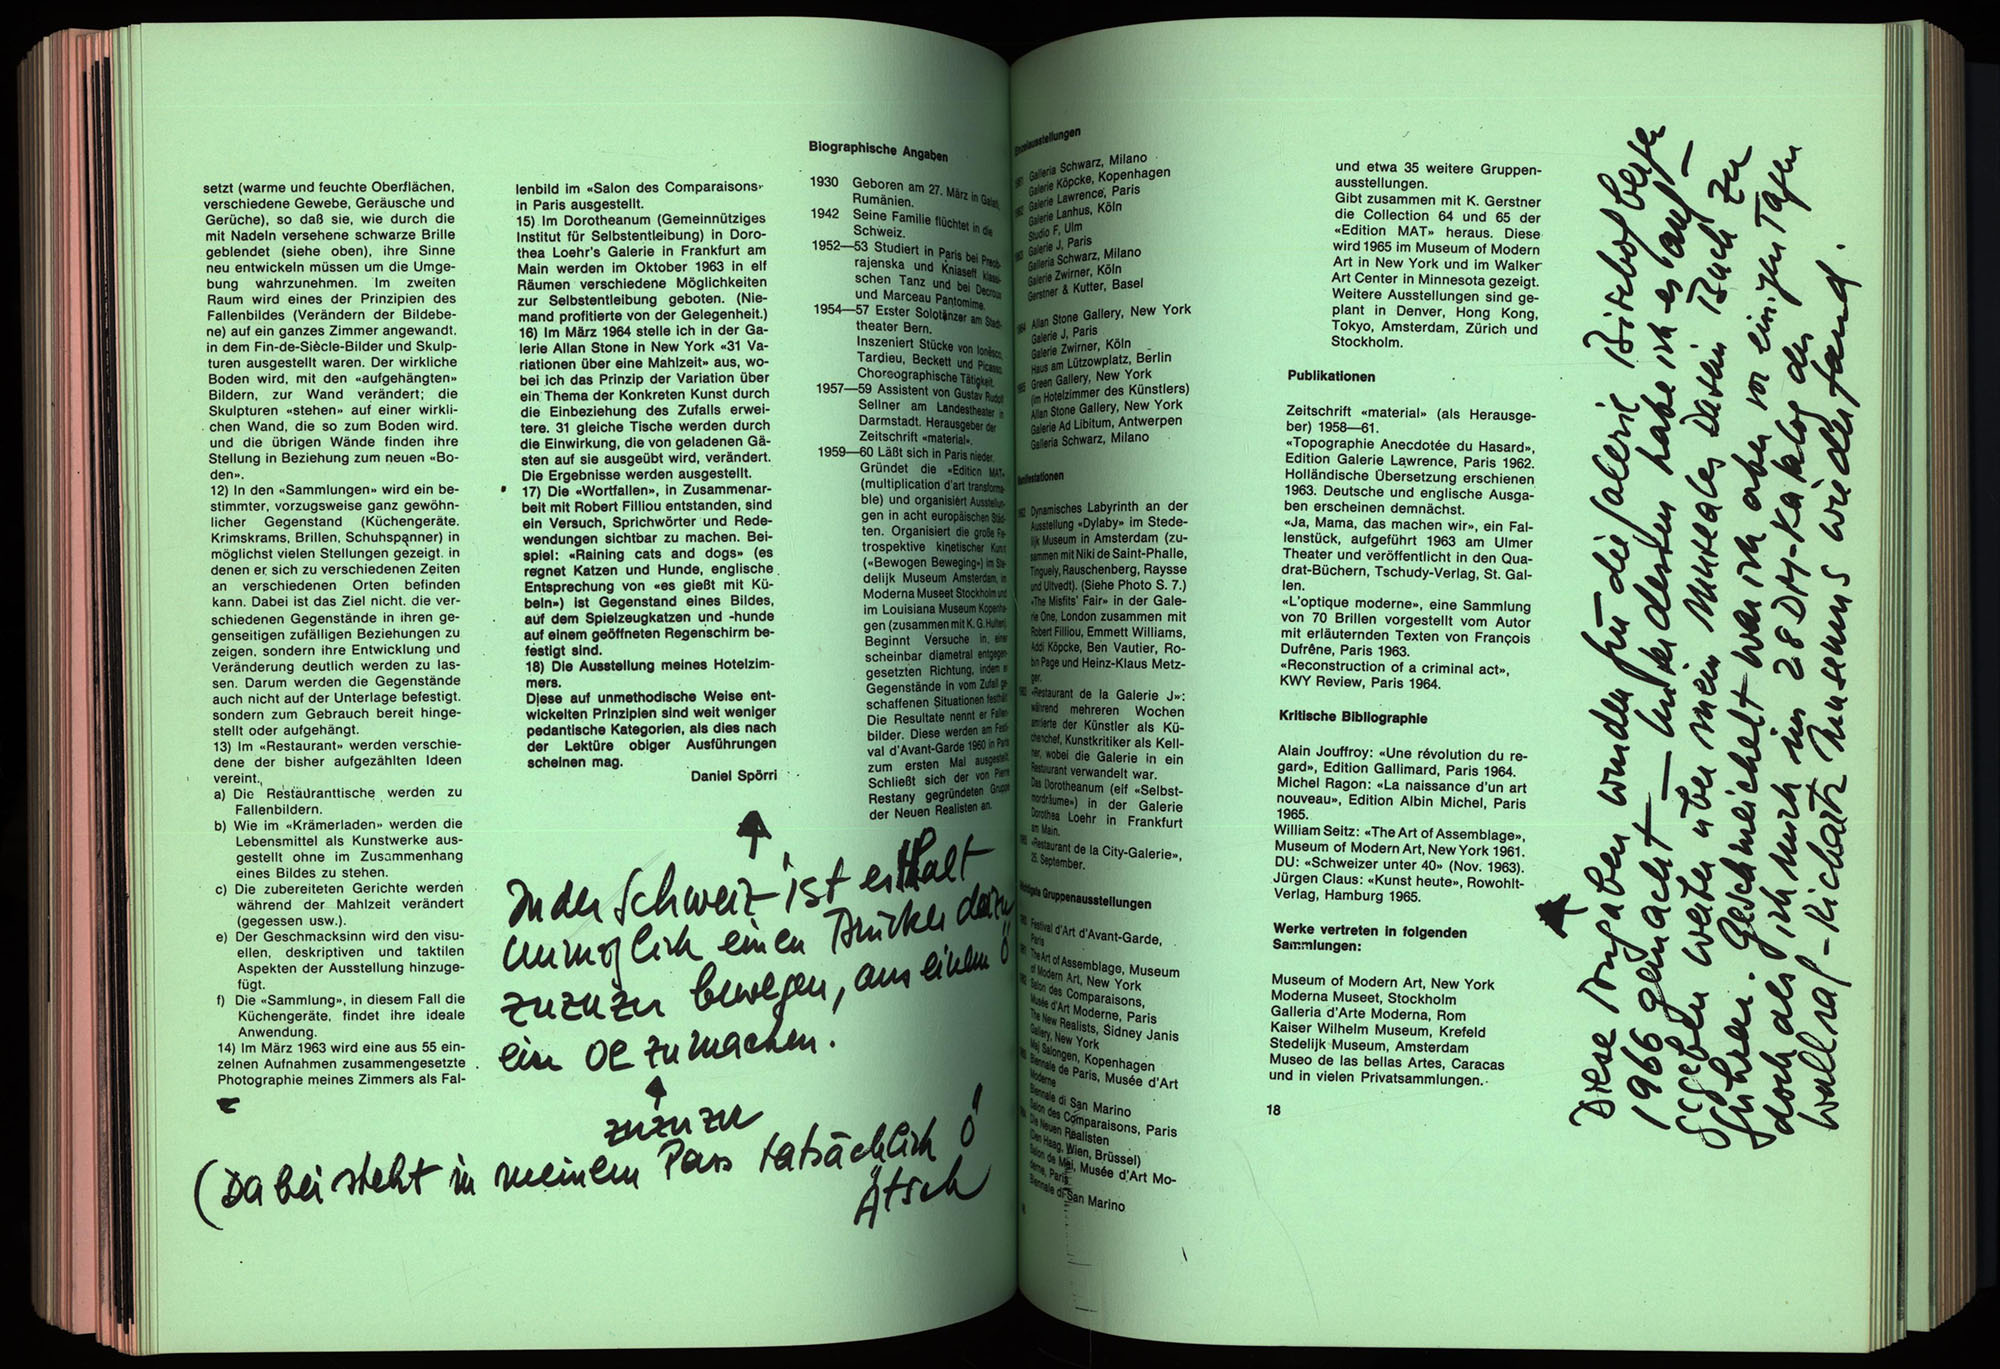 setzt (warme und feuchte Oberflächen,
verschiedene Gewebe, Geräusche und
Gerüche), so daß sie, wie durch die
mit Nadeln versehene schwarze Brille
geblendet (siehe oben), ihre Sinne
neu entwickeln müssen um die Umge-
bung wahrzunehmen. Im zweiten
Raum wird eines der Prinzipien des
Fallenbildes (Verändern der Bildebe-
ne) auf ein ganzes Zimmer angewandt,
in dem Fin-de-Siècle-Bilder und Skulp-
turen ausgestellt waren. Der wirkliche
Boden wird, mit den «aufgehängten»
Bildern, zur Wand verändert; die
Skulpturen «stehen» auf einer wirkli-
chen Wand, die so zum Boden wird.
und die übrigen Wände finden ihre
Stellung in Beziehung zum neuen «Bo-
den».
12) In den «Sammlungen» wird ein be-
stimmter, vorzugsweise ganz gewöhn-
licher Gegenstand (Küchengeräte,
Krimskrams, Brillen, Schuhspanner) in
möglichst vielen Stellungen gezeigt, in
denen er sich zu verschiedenen Zeiten
an verschiedenen Orten befinden
kann. Dabei ist das Ziel nicht, die ver-
schiedenen Gegenstände in ihren ge-
genseitigen zufälligen Beziehungen zu
zeigen, sondern ihre Entwicklung und
Veränderung deutlich werden zu las-
sen. Darum werden die Gegenstände
auch nicht auf der Unterlage befestigt,
sondern zum Gebrauch bereit hinge-
stellt oder aufgehängt.
13) Im «Restaurant» werden verschie-
dene der bisher aufgezählten Ideen
vereint.
a) Die Restauranttische werden zu
Fallenbildern.
b) Wie im «Krämerladen» werden die
Lebensmittel als Kunstwerke aus-
gestellt ohne im Zusammenhang
eines Bildes zu stehen.
c) Die zubereiteten Gerichte werden
während der Mahlzeit verändert
(gegessen usw.).
e) Der Geschmacksinn wird den visu-
ellen, deskriptiven und taktilen
Aspekten der Ausstellung hinzuge-
fügt.
f) Die «Sammlung», in diesem Fall die
Küchengeräte, findet ihre ideale
Anwendung.
14) Im März 1963 wird eine aus 55 ein-
zelnen Aufnahmen zusammengesetzte
Photographie meines Zimmers als Fal-
lenbild im «Salon des Comparaisons»
in Paris ausgestellt.
15) Im Dorotheanum (Gemeinnütziges
Institut für Selbstentleibung) in Doro-
thea Loehr's Galerie in Frankfurt am
Main werden im Oktober 1963 in elf
Räumen verschiedene Möglichkeiten
zur Selbstentleibung geboten. (Nie-
mand profitierte von der Gelegenheit.)
16) Im März 1964 stelle ich in der Ga-
lerie Allan Stone in New York «31 Va-
riationen über eine Mahlzeit» aus, wo-
bei ich das Prinzip der Variation über
ein Thema der Konkreten Kunst durch
die Einbeziehung des Zufalls erwei-
tere. 31 gleiche Tische werden durch
die Einwirkung, die von geladenen Gä-
sten auf sie ausgeübt wird, verändert.
Die Ergebnisse werden ausgestellt.
17) Die «Wortfallen», in Zusammenar-
beit mit Robert Filliou entstanden, sind
ein Versuch, Sprichwörter und Rede-
wendungen sichtbar zu machen. Bei-
spiel: «Raining cats and dogs» (es
regnet Katzen und Hunde, englische
Entsprechung von «es gießt mit Kü-
beln») ist Gegenstand eines Bildes,
auf dem Spielzeugkatzen und -hunde
auf einem geöffneten Regenschirm be-
festigt sind.
18) Die Ausstellung meines Hotelzim-
mers.
Diese auf unmethodische Weise ent-
wickelten Prinzipien sind weit weniger
pedantische Kategorien, als dies nach
der Lektüre obiger Ausführungen
scheinen mag.
Daniel Spörri
In der Schweiz ist es halt
unmöglich einen Drucker dazu
zuzuzu bewegen, aus einem Ö
ein OE zu machen.
zuzuzu
(Dabei steht in meinem Pass tatsächlich Ö
Ätsch
Biographische Angaben
1930 Geboren am 27. März in Galati,
Rumänien.
1942 Seine Familie flüchtet in die
Schweiz.
1952—53 Studiert in Paris bei Preob-
rajenska und Kniaseff klassi-
schen Tanz und bei Decroux
und Marceau Pantomime.
1954—57 Erster Solotänzer am Stadt-
theater Bern.
Inszeniert Stücke von Ionesco,
Tardieu, Beckett und Picasso.
Choreographische Tätigkeit.
1957—59 Assistent von Gustav Rudolf
Sellner am Landestheater in
Darmstadt. Herausgeber der
Zeitschrift «material».
1959—60 Läßt sich in Paris nieder.
Gründet die «Edition MAT»
(multiplication d'art transforma-
ble) und organisiert Ausstellun-
gen in acht europäischen Städ-
ten. Organisiert die große Re-
trospektive kinetischer Kunst
(«Bewogen Beweging») im Ste-
delijk Museum Amsterdam, im
Moderna Museet Stockholm und
im Louisiana Museum Kopenha-
gen (zusammen mit K. G. Hulten).
Beginnt Versuche in einer
scheinbar diametral entgegen-
gesetzten Richtung, indem er
Gegenstände in vom Zufall ge-
schaffenen Situationen festhält.
Die Resultate nennt er Fallen-
bilder. Diese werden am Festi-
val d'Avant-Garde 1960 in Paris
zum ersten Mal ausgestellt.
Schließt sich der von Pierre
Restany gegründeten Gruppe
der Neuen Realisten an.
Einzelausstellungen
1961 Galleria Schwarz, Milano
Galerie Köpcke, Kopenhagen
1962 Galerie Lawrence, Paris
Galerie Lanhus, Köln
Studio F, Ulm
1963 Galerie J, Paris
Galleria Schwarz, Milano
Galerie Zwirner, Köln
Gerstner & Kutter, Basel
1964 Allan Stone Gallery, New York
Galerie J, Paris
Galerie Zwirner, Köln
Haus am Lützowplatz, Berlin
1965 Green Gallery, New York
(im Hotelzimmer des Künstlers)
Allan Stone Gallery, New York
Galerie Ad Libitum, Antwerpen
Galleria Schwarz, Milano
Manifestationen
1962 Dynamisches Labyrinth an der
Ausstellung «Dylaby» im Stede-
lijk Museum in Amsterdam (zu-
sammen mit Niki de Saint-Phalle,
Tinguely, Rauschenberg, Raysse
und Ultvedt). (Siehe Photo S. 7.)
«The Misfits' Fair» in der Gale-
rie One, London zusammen mit
Robert Filliou, Emmett Williams,
Addi Köpcke, Ben Vautier, Ro-
bin Page und Heinz-Klaus Metz-
ger.
1963 «Restaurant de la Galerie J»:
während mehreren Wochen
amtierte der Künstler als Kü-
chenchef, Kunstkritiker als Kell-
ner, wobei die Galerie in ein
Restaurant verwandelt war.
Das Dorotheanum (elf «Selbst-
mordräume») in der Galerie
Dorothea Loehr in Frankfurt
am Main.
1965 «Restaurant de la City-Galerie»,
25. September.
Wichtigste Gruppenausstellungen
1960 Festival d'Art d'Avant-Garde,
Paris
1961 The Art of Assemblage, Museum
of Modern Art, New York
1962 Salon des Comparaisons,
Musée d'Art Moderne, Paris
The New Realists, Sidney Janis
Gallery, New York
1963 Maj Salongen, Kopenhagen
Biennale de Paris, Musée d'Art
Moderne
Biennale di San Marino
Salon des Comparaisons, Paris
1964 Die Neuen Realisten
(Den Haag, Wien, Brüssel)
Salon de Mai, Musée d'Art Mo-
derne, Paris
Biennale di San Marino
und etwa 35 weitere Gruppen-
ausstellungen.
Gibt zusammen mit K. Gerstner
die Collection 64 und 65 der
«Edition MAT» heraus. Diese
wird 1965 im Museum of Modern
Art in New York und im Walker
Art Center in Minnesota gezeigt.
Weitere Ausstellungen sind ge-
plant in Denver, Hong Kong,
Tokyo, Amsterdam, Zürich und
Stockholm.
Publikationen
Zeitschrift «material» (als Herausge-
ber) 1958—61.
«Topographie Anecdotée du Hasard»,
Edition Galerie Lawrence, Paris 1962.
Holländische Übersetzung erschienen
1963. Deutsche und englische Ausga-
ben erscheinen demnächst.
«Ja, Mama, das machen wir», ein Fal-
lenstück, aufgeführt 1963 am Ulmer
Theater und veröffentlicht in den Qua-
drat-Büchern, Tschudy-Verlag, St. Gal-
len.
«L'optique moderne», eine Sammlung
von 70 Brillen vorgestellt vom Autor
mit erläuternden Texten von François
Dufrêne, Paris 1963.
«Reconstruction of a criminal act»,
KWY Review, Paris 1964.
Kritische Bibliographie
Alain Jouffroy: «Une révolution du re-
gard», Edition Gallimard, Paris 1964.
Michel Ragon: «La naissance d'un art
nouveau», Edition Albin Michel, Paris
1965.
William Seitz: «The Art of Assemblage»,
Museum of Modern Art, New York 1961.
DU: «Schweizer unter 40» (Nov. 1963).
Jürgen Claus: «Kunst heute», Rowohlt-
Verlag, Hamburg 1965.
Werke vertreten in folgenden
Sammlungen:
Museum of Modern Art, New York
Moderna Museet, Stockholm
Galleria d'Arte Moderna, Rom
Kaiser Wilhelm Museum, Krefeld
Stedelijk Museum, Amsterdam
Museo de las bellas Artes, Caracas
und in vielen Privatsammlungen.
18
Diese Angaben wurden für die Galerie Bischofberger
1966 gemacht — unterdessen habe ich es aufge-
geben weiter über mein Museales Dasein Buch zu
führen. Geschmeichelt war ich aber vor einigen Tagen
doch als ich mich im 28 DM-Katalog des
Wallraf-Richartz Museums wiederfand.